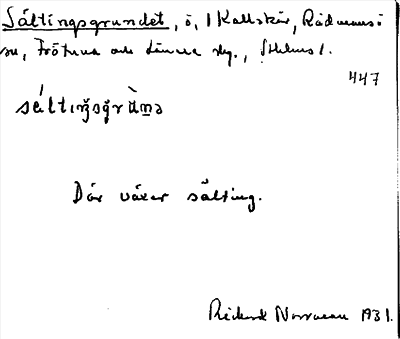 Sältingsgrundet, ö, i Kallskär, Rådmansö
sn, Frötuna och Länna skg., Sthlms l.
447
sältiŋsgrùnə
Där växer sälting.
Rickard Norrman 1931.